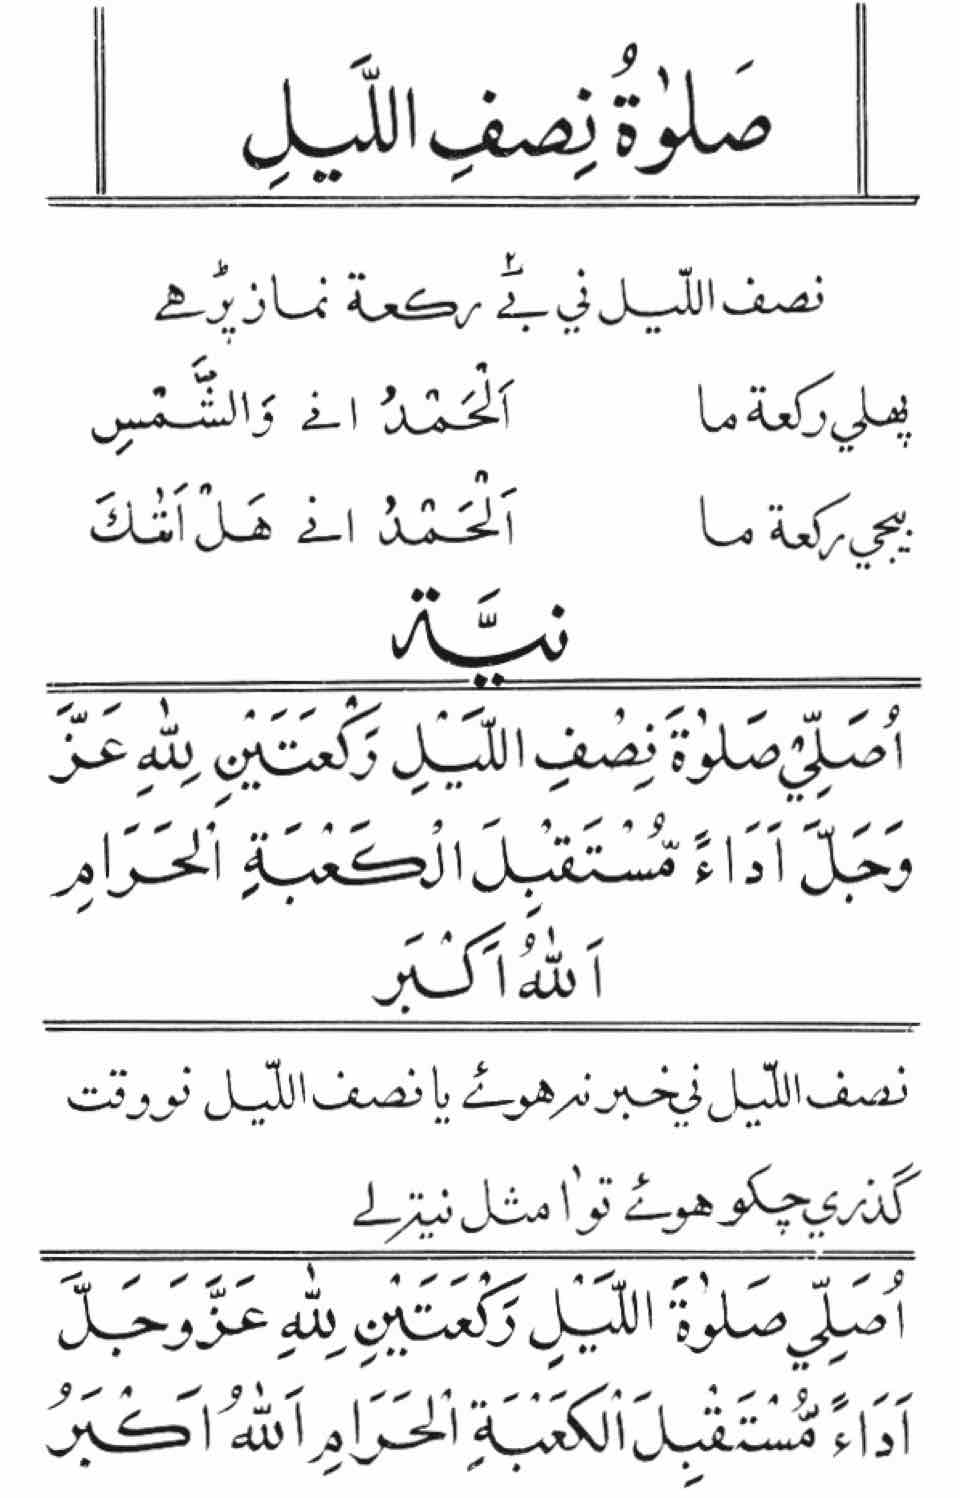 صَلٰوةُ نِصفِ اللَّيلِ
نصف اللّيل ني بْے ركعة نماز پڑهے
پهلي ركعة ما اَلْحَمْدُ انے وَالشَّمْسِ
بيجي ركعة ما اَلْحَمْدُ انے هَلْ اَتٰىكَ
نيَّة
اُصَلِّيْ صَلٰوةَ نِصْفِ اللَّيْلِ رَكْعَتَيْنِ لِلّٰهِ عَزَّ
وَجَلَّ اَدَاءً مُّسْتَقْبِلَ الْكَعْبَةِ الْحَرَامِ
اَللّٰهُ اَكْبَر
نصف اللّيل ني خبر نہ هوئے يا نصف اللّيل نو وقت
گذري چكو هوئے تو اٰ مثل نية لے
اُصَلِّي صَلٰوةَ اللَّيْلِ رَكْعَتَيْنِ لِلّٰهِ عَزَّ وَجَلَّ
اَدَاءً مُّسْتَقْبِلَ الْكَعْبَةِ الْحَرَامِ اَللّٰهُ اَكْبَرُ